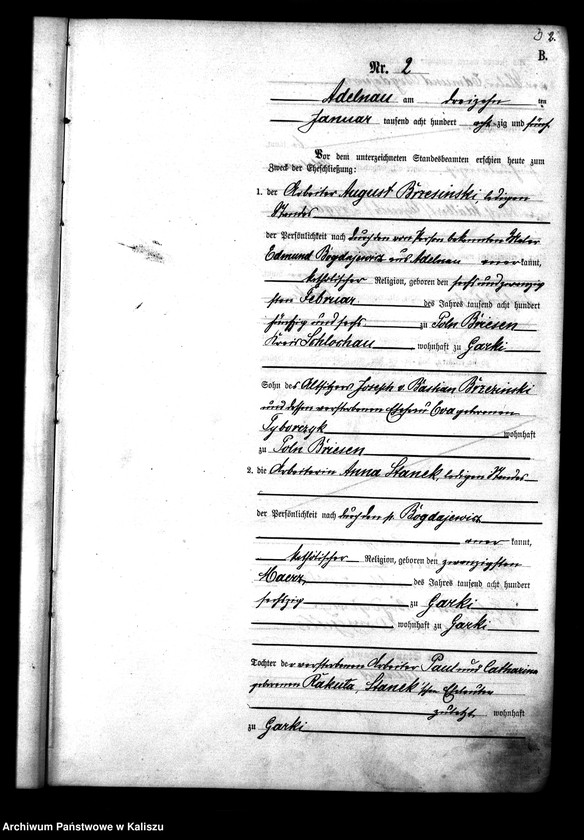 32.
B.
Nr. 2
Adelnau am dreizehn ten
Januar tausend acht hundert acht zig und fünf
Vor dem unterzeichneten Standesbeamten erschien heute zum
Zweck der Eheschließung:
1. der Arbeiter August Brzesinski, ledigen
Standes
der Persönlichkeit nach durch den von Person bekannten Maler
Edmund Bogdajewicz aus Adelnau aner kannt,
katholischer Religion, geboren den sechs und zwanzig
sten Februar des Jahres tausend acht hundert
fünfzig und sechs zu Poln Briesen
Kreis Schlochau, wohnhaft zu Garki
Sohn des Altsitzers Joseph v. Bastian Brzezinski
und dessen verstorbenen Ehefrau Eva geborenen
Tyborczyk wohnhaft
zu Poln Briesen
2. die Arbeiterin Anna Stanek, ledigen Standes
der Persönlichkeit nach durch den p. Bogdajewicz
aner kannt,
katholischer Religion, geboren den zwanzigsten
Maerz, des Jahres tausend acht hundert
sechszig zu Garki
, wohnhaft zu Garki
Tochter der verstorbenen Arbeiter Paul und Catharina
geborenen Rakuta, Stanek'schen Eheleute
zuletzt wohnhaft
zu Garki
Archiwum Państwowe w Kaliszu